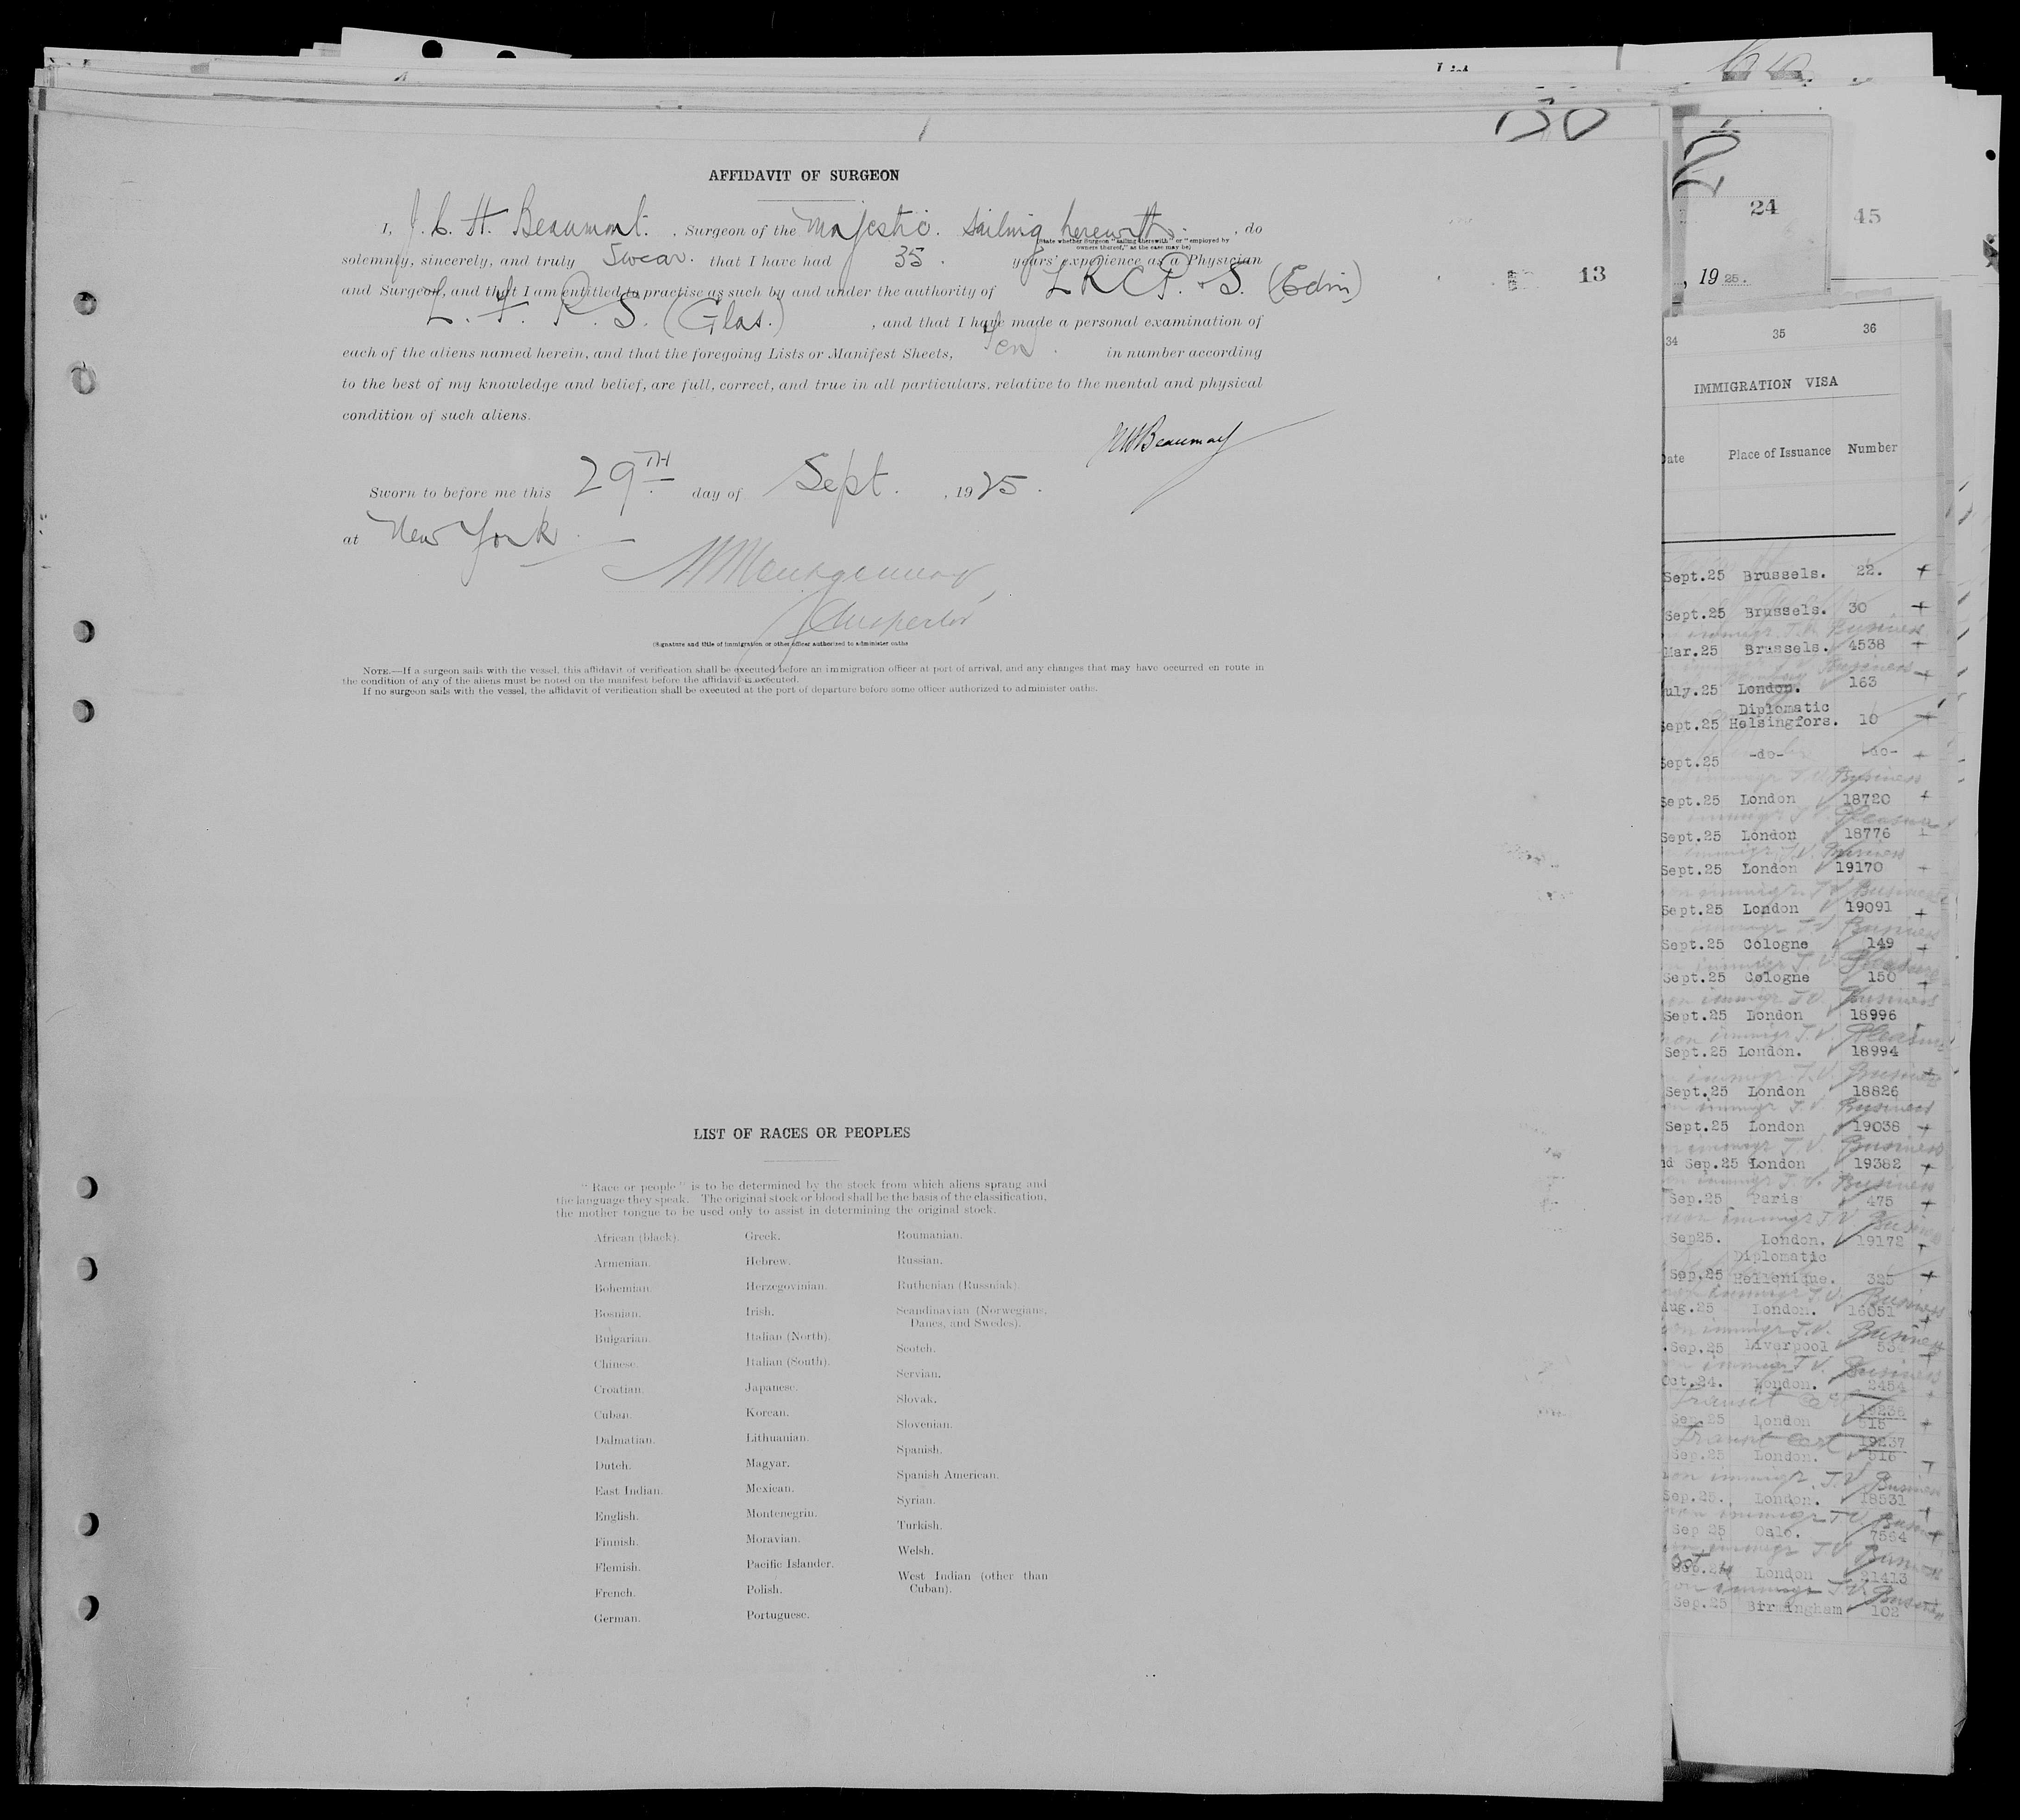 130
AFFIDAVIT OF SURGEON
I, J. C. H. Beaumont. , Surgeon of the Majestic. Sailing herewith. , do
(State whether Surgeon "sailing therewith" or "employed by
owners thereof," as the case may be)
solemnly, sincerely, and truly Swear. that I have had 35. years' experience as a Physician
and Surgeon, and that I am entitled to practise as such by and under the authority of L R C P. & S. (Edin)
L. F. P. S. (Glas.) , and that I have made a personal examination of
each of the aliens named herein, and that the foregoing Lists or Manifest Sheets, Ten . in number according
to the best of my knowledge and belief, are full, correct, and true in all particulars, relative to the mental and physical
condition of such aliens.
Sworn to before me this 29TH day of Sept. , 1925.
at New York.
Inspector
(Signature and title of immigration or other officer authorized to administer oaths
NOTE.—If a surgeon sails with the vessel, this affidavit of verification shall be executed before an immigration officer at port of arrival, and any changes that may have occurred en route in
the condition of any of the aliens must be noted on the manifest before the affidavit is executed.
If no surgeon sails with the vessel, the affidavit of verification shall be executed at the port of departure before some officer authorized to administer oaths.
13
LIST OF RACES OR PEOPLES
"Race or people" is to be determined by the stock from which aliens sprang and
the language they speak. The original stock or blood shall be the basis of the classification,
the mother tongue to be used only to assist in determining the original stock.
African (black).
Armenian.
Bohemian.
Bosnian.
Bulgarian.
Chinese.
Croatian.
Cuban.
Dalmatian.
Dutch.
East Indian.
English.
Finnish.
Flemish.
French.
German.
Greek.
Hebrew.
Herzegovinian.
Irish.
Italian (North).
Italian (South).
Japanese.
Korean.
Lithuanian.
Magyar.
Mexican.
Montenegrin.
Moravian.
Pacific Islander.
Polish.
Portuguese.
Roumanian.
Russian.
Ruthenian (Russniak).
Scandinavian (Norwegians,
Danes, and Swedes).
Scotch.
Servian.
Slovak.
Slovenian.
Spanish.
Spanish American.
Syrian.
Turkish.
Welsh.
West Indian (other than
Cuban).
2
24
45
, 19 25.
34 35 36
IMMIGRATION VISA
Date Place of Issuance Number
Sept.25 Brussels. 22. +
Sept.25 Brussels. 30 +
Business
Mar.25 Brussels. 4538 +
Business
July.25 London. 163 +
Diplomatic
Sept.25 Helsingfors. 10 +
Sept.25 -do- -do- +
Business
Sept.25 London 18720 +
Pleasure
Sept.25 London 18776 +
Business
Sept.25 London 19170 +
Business
Sept.25 London 19091 +
Business
Sept.25 Cologne 149 +
Pleasure
Sept.25 Cologne 150 +
non immigr T.V. Business
Sept.25 London 18996
non immigr T.V. Pleasure
Sept.25 London. 18994 +
immigr T.V. Business
Sept.25 London 18826
immigr T.V. Business
Sept.25 London 19038 +
immigr T.V. Business
Sep.25 London 19382 +
immigr T.V. Business
Sep.25 Paris 475 +
immigr T.V. Business
Sep25. London. 19172 +
Diplomatic
Sep.25 Hellenique. 325 +
immigr T.V. Business
Aug.25 London. 16051 +
immigr T.V. Business
Sep.25 Liverpool 534 +
immigr T.V. Business
Oct.24. London. 2454 +
Transit Cert 19236
Sep.25 London 515 +
Transit Cert 19237
Sep.25 London. 516 +
non immigr T.V. Business
Sep.25. London. 18531 +
non immigr T.V. Business
Sep 25 Oslo. 7554 +
immigr T.V. Business
Oct London 21413
immigr T.V. Business
Sep.25 Birmingham 102